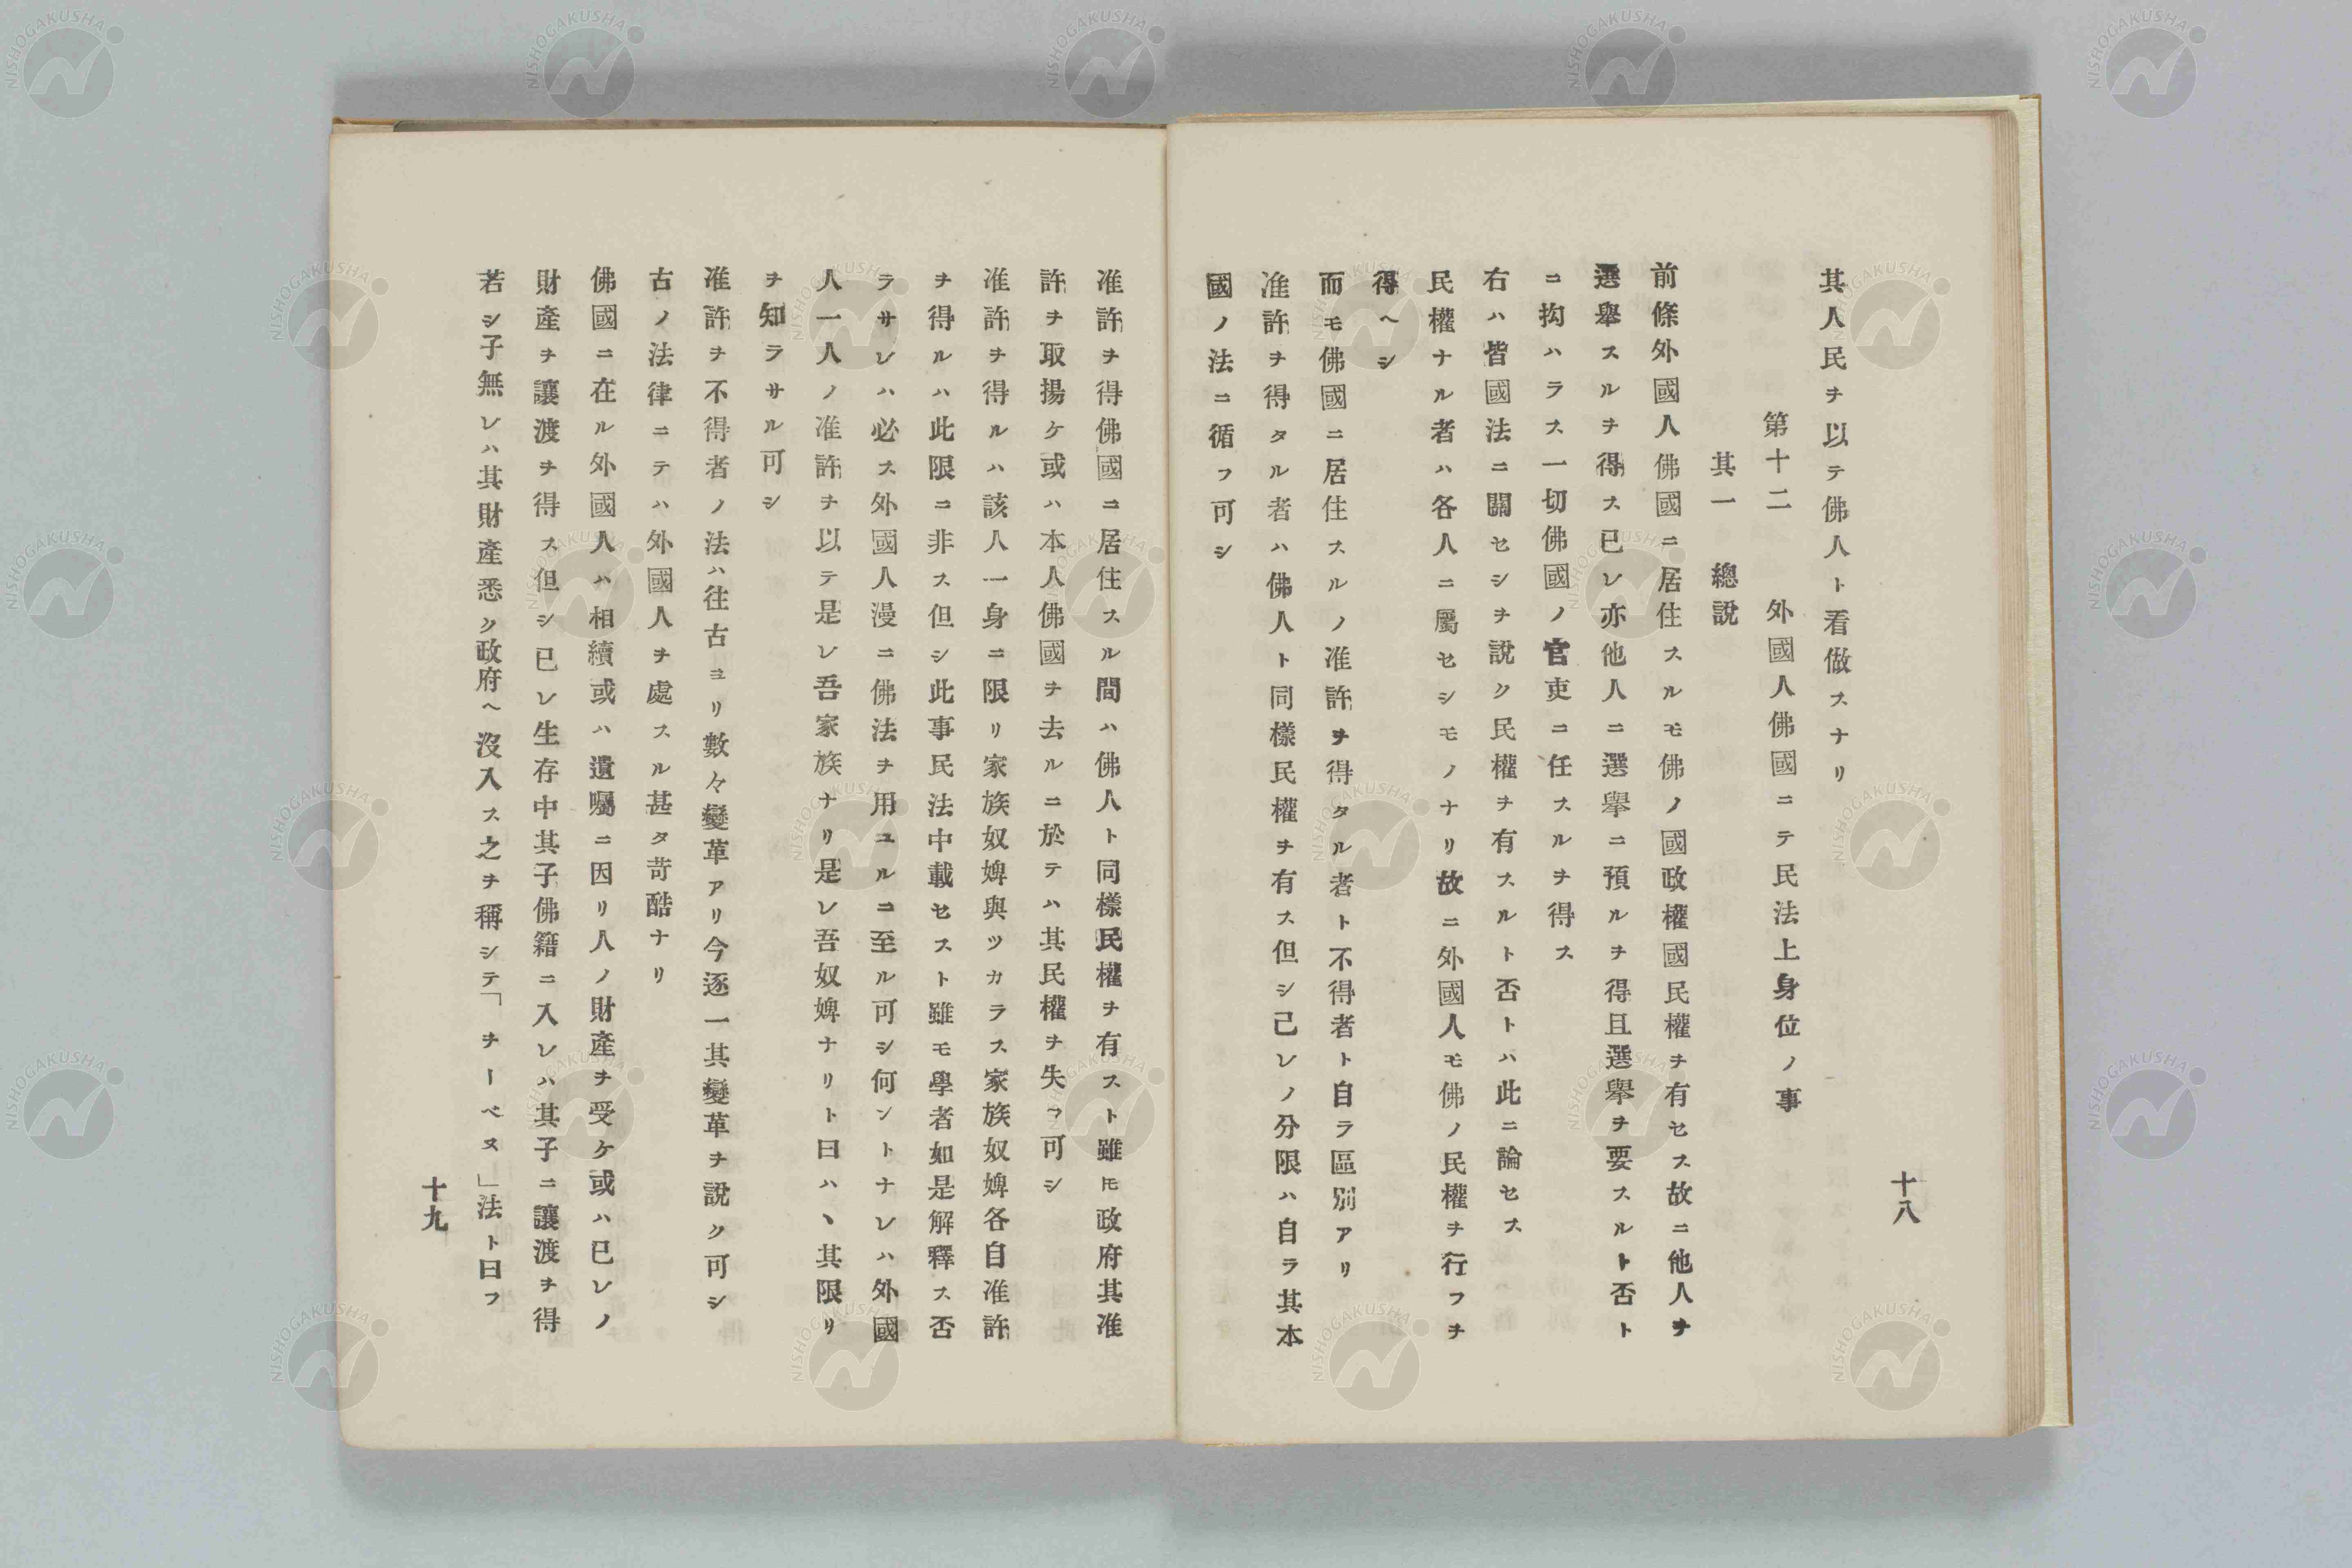 十八
其人民ヲ以テ佛人ト看做スナリ
第十二　外國人佛國ニテ民法上身位ノ事
其一　總說
前條外國人佛國ニ居住スルモ佛ノ國政權國民權ヲ有セス故ニ他人ヲ
選舉スルヲ得ス已レ亦他人ニ選舉ニ預ルヲ得且選舉ヲ要スルト否ト
ニ拘ハラス一切佛國ノ官吏ニ任スルヲ得ス
右ハ皆國法ニ關セシヲ說ク民權ヲ有スルト否トハ此ニ論セス
民權ナル者ハ各人ニ屬セシモノナリ故ニ外國人モ佛ノ民權ヲ行フヲ
得ヘシ
而モ佛國ニ居住スルノ准許ヲ得タル者ト不得者ト自ラ區別アリ
准許ヲ得タル者ハ佛人ト同樣民權ヲ有ス但シ己レノ分限ハ自ラ其本
國ノ法ニ循フ可シ
准許ヲ得佛國ニ居住スル間ハ佛人ト同樣民權ヲ有スト雖𪜈政府其准
許ヲ取揚ケ或ハ本人佛國ヲ去ルニ於テハ其民權ヲ失フ可シ
准許ヲ得ルハ該人一身ニ限リ家族奴婢與ツカラス家族奴婢各自准許
ヲ得ルハ此限ニ非ス但シ此事民法中載セスト雖モ學者如是解釋ス否
ラサレハ必ス外國人漫ニ佛法ヲ用ユルニ至ル可シ何ントナレハ外國
人一人ノ准許ヲ以テ是レ吾家族ナリ是レ吾奴婢ナリト曰ハヽ其限リ
ヲ知ラサル可シ
准許ヲ不得者ノ法ハ往古ヨリ數々變革アリ今逐一其變革ヲ說ク可シ
古ノ法律ニテハ外國人ヲ處スル甚タ苛酷ナリ
佛國ニ在ル外國人ハ相續或ハ遺囑ニ因リ人ノ財產ヲ受ケ或ハ已レノ
財產ヲ讓渡ヲ得ス但シ已レ生存中其子佛籍ニ入レハ其子ニ讓渡ヲ得
若シ子無レハ其財產悉ク政府ヘ沒入ス之ヲ稱シテ「ヲーベヌ」法ト曰フ
十九
NISHOGAKUSHA